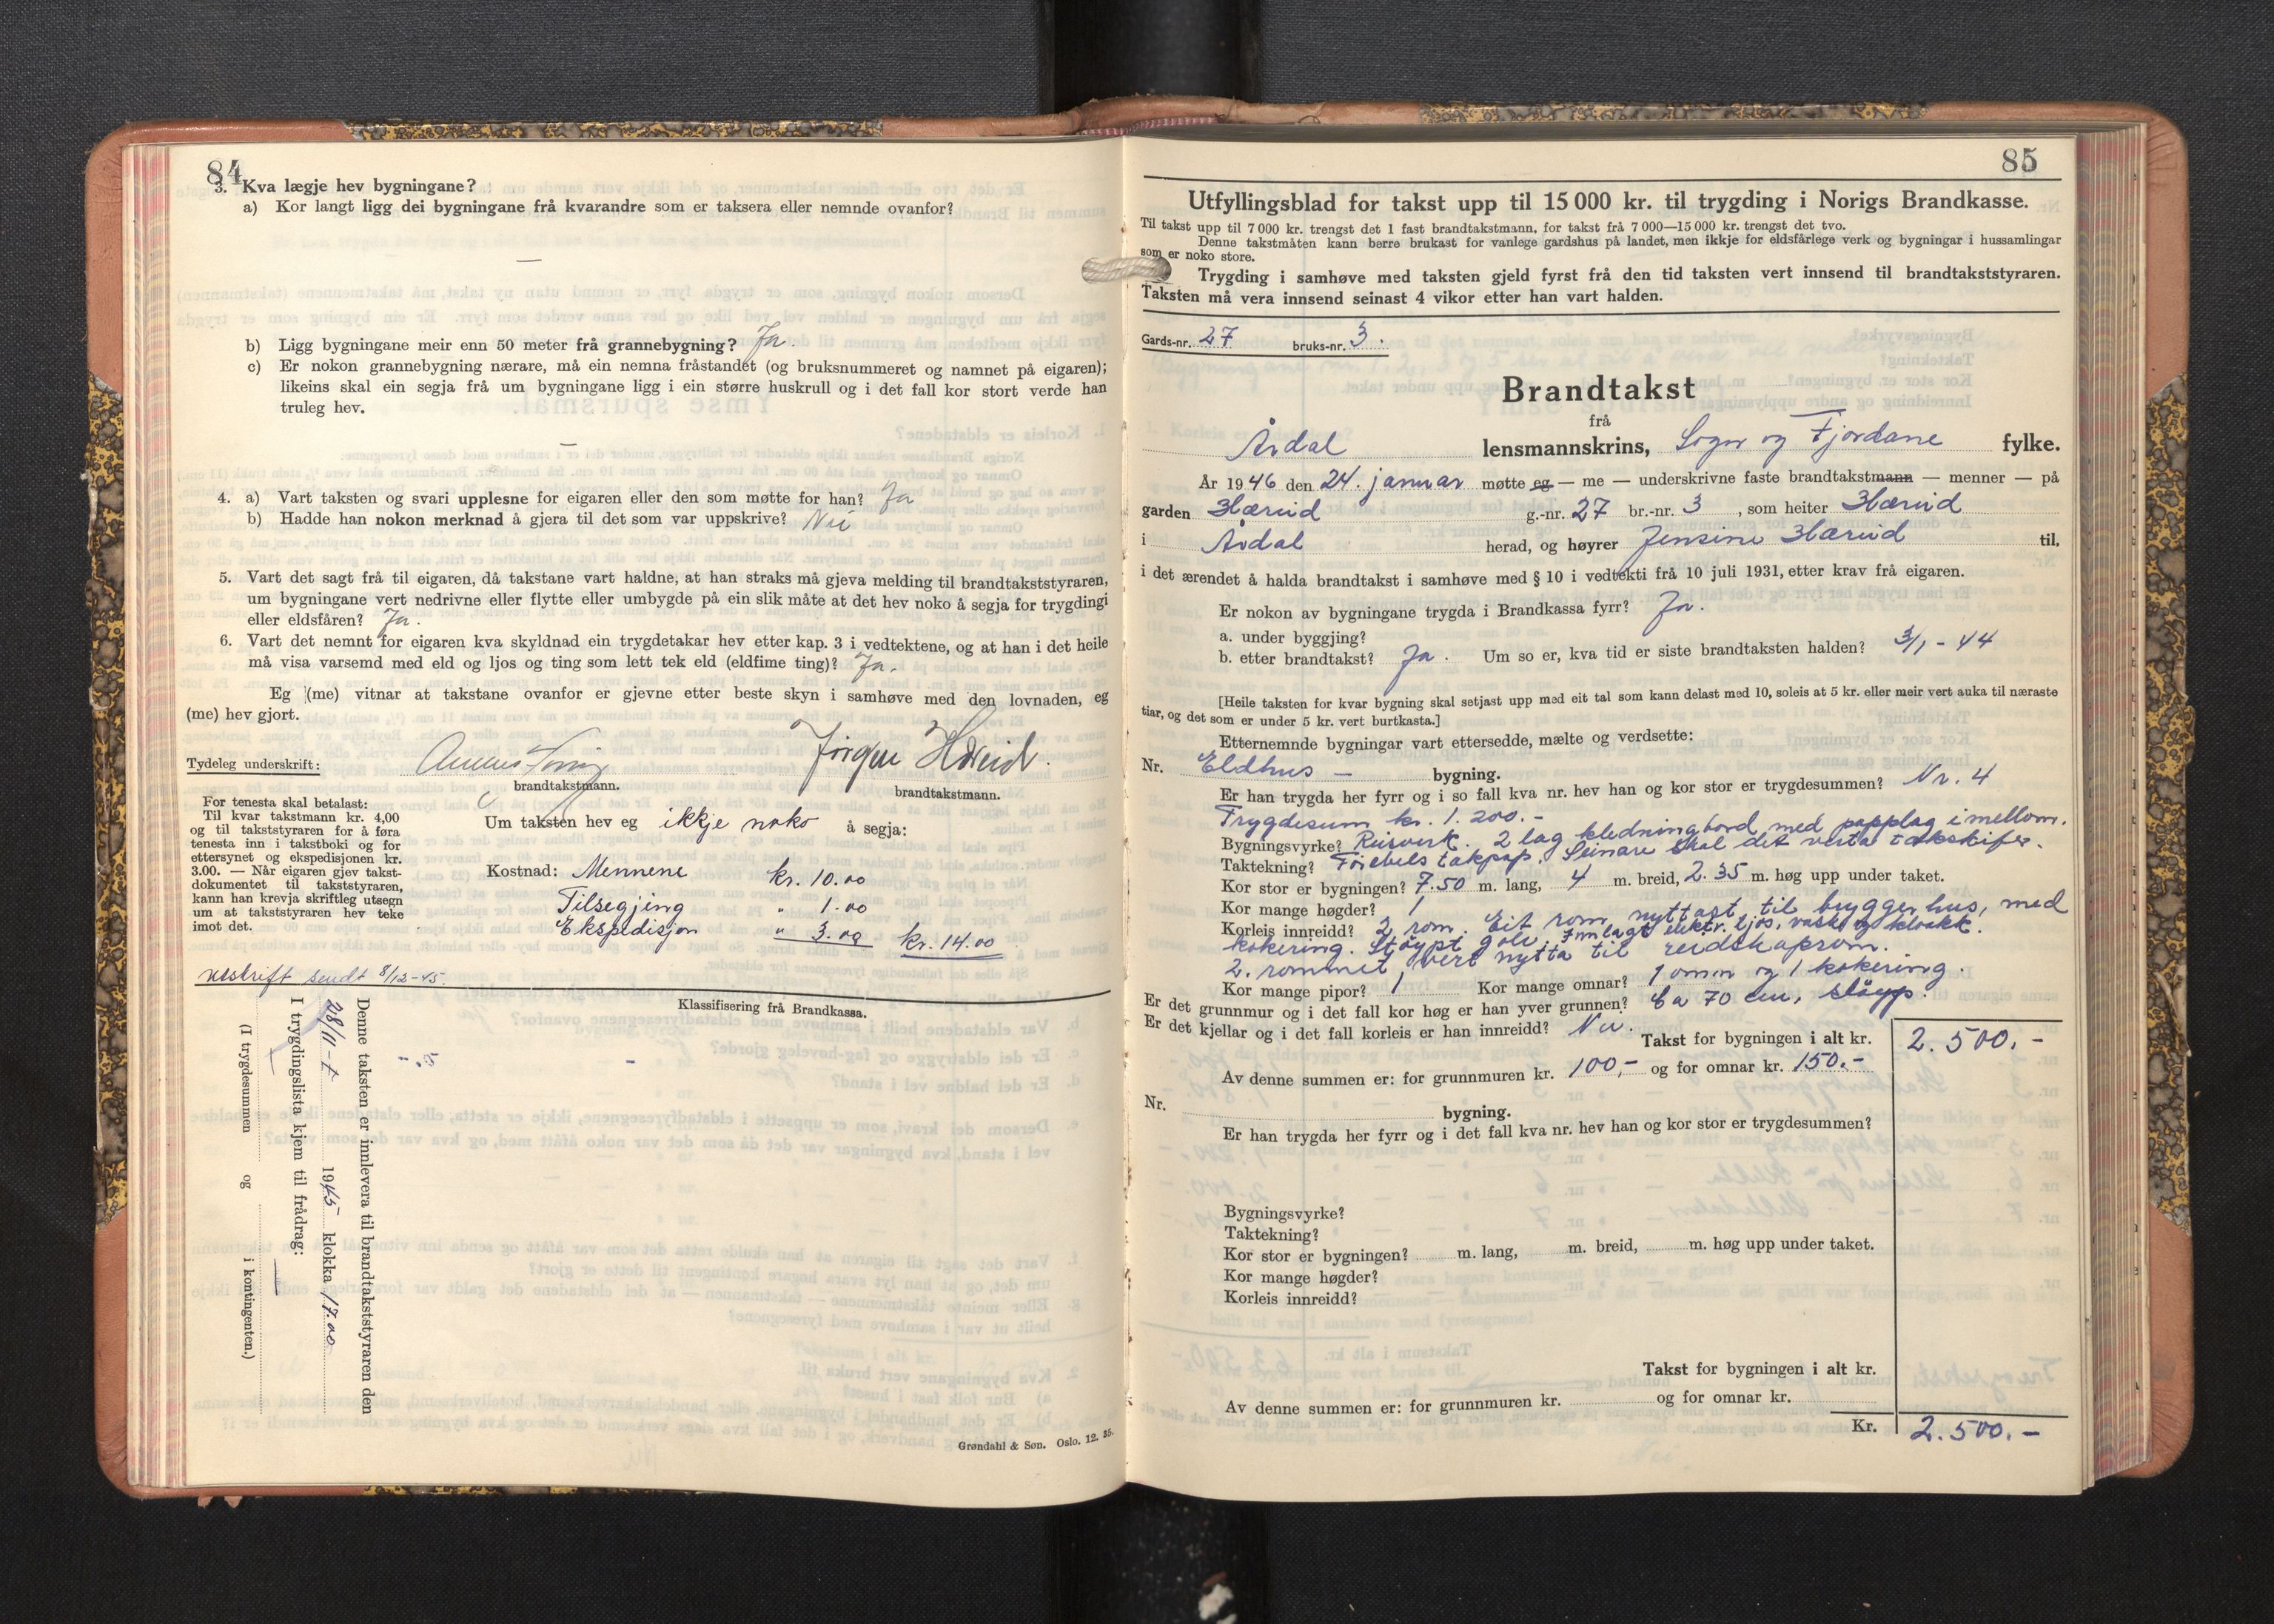 84
3. Kva lægje hev bygningane?
a) Kor langt ligg dei bygningane frå kvarandre som er taksera eller nemnde ovanfor?
—
b) Ligg bygningane meir enn 50 meter frå grannebygning? Ja.
c) Er nokon grannebygning nærare, må ein nemna fråstandet (og bruksnummeret og namnet på eigaren);
likeins skal ein segja frå um bygningane ligg i ein større huskrull og i det fall kor stort verde han
truleg hev.
—
4. a) Vart taksten og svari upplesne for eigaren eller den som møtte for han? Ja
b) Hadde han nokon merknad å gjera til det som var uppskrive? Nei
5. Vart det sagt frå til eigaren, då takstane vart haldne, at han straks må gjeva melding til brandtakststyraren,
um bygningane vert nedrivne eller flytte eller umbygde på ein slik måte at det hev noko å segja for trygdingi
eller eldsfåren? Ja.
6. Vart det nemnt for eigaren kva skyldnad ein trygdetakar hev etter kap. 3 i vedtektene, og at han i det heile
må visa varsemd med eld og ljos og ting som lett tek eld (eldfime ting)? Ja.
Eg (me) vitnar at takstane ovanfor er gjevne etter beste skyn i samhøve med den lovnaden, eg
(me) hev gjort.
Tydeleg underskrift: Jørgen Hæreid.
brandtakstmann. brandtakstmann.
For tenesta skal betalast:
Til kvar takstmann kr. 4,00
og til takststyraren for å føra
tenesta inn i takstboki og for
ettersynet og ekspedisjonen kr.
3.00. — Når eigaren gjev takst-
dokumentet til takststyraren,
kann han krevja skriftleg utsegn
um at takststyraren hev teke
imot det.
Um taksten hev eg ikkje noko å segja:
Kostnad: Mennene kr. 10.00
Tilsegjing " 1.00
Ekspedisjon " 3.00 kr. 14.00
utskrift sendt 8/12-45.
Klassifisering frå Brandkassa.
Denne taksten er innlevera til brandtakststyraren den
28/11- 1945 klokka 17.00
I trygdingslista kjem til frådrag:
(I trygdesummen og i kontingenten.)
Grøndahl & Søn. Oslo. 12. 35.
85
Utfyllingsblad for takst upp til 15 000 kr. til trygding i Norigs Brandkasse.
Til takst upp til 7 000 kr. trengst det 1 fast brandtakstmann, for takst frå 7 000—15 000 kr. trengst det tvo.
Denne takstmåten kann berre brukast for vanlege gardshus på landet, men ikkje for eldsfårlege verk og bygningar i hussamlingar
som er noko store.
Trygding i samhøve med taksten gjeld fyrst frå den tid taksten vert innsend til brandtakststyraren.
Taksten må vera innsend seinast 4 vikor etter han vart halden.
Gards-nr. 27 bruks-nr. 3.
Brandtakst
frå
Årdal lensmannskrins, Sogn og Fjordane fylke.
År 1946 den 24. januar møtte eg — me — underskrivne faste brandtakstmann — menner — på
garden Hæreid g.-nr. 27 br.-nr. 3, som heiter Hæreid
i Årdal herad, og høyrer Jensine Hæreid til,
i det ærendet å halda brandtakst i samhøve med § 10 i vedtekti frå 10 juli 1931, etter krav frå eigaren.
Er nokon av bygningane trygda i Brandkassa fyrr? Ja.
a. under byggjing?
b. etter brandtakst? Ja. Um so er, kva tid er siste brandtaksten halden? 3/1 - 44
[Heile taksten for kvar bygning skal setjast upp med eit tal som kann delast med 10, soleis at 5 kr. eller meir vert auka til næraste
tiar, og det som er under 5 kr. vert burtkasta.]
Etternemnde bygningar vart ettersedde, mælte og verdsette:
Nr. Eldhus — bygning.
Er han trygda her fyrr og i so fall kva nr. hev han og kor stor er trygdesummen? Nr. 4
Trygdesum kr. 1.200.-
Bygningsvyrke? Reisverk. 2 lag kledningbord med papplag imellom.
Taktekning? Førebels takpap. Seinare skal det verta takskifer.
Kor stor er bygningen? 7.50 m. lang, 4 m. breid, 2.35 m. høg upp under taket.
Kor mange høgder? 1
Korleis innreidd? 2 rom. Eit rom nyttast til bryggerhus, med
kokering. Støypt golv. Innlagt elektr. ljos, vask og kloakk.
2. rommet vert nytta til reidskapsrom.
Kor mange pipor? 1 Kor mange omnar? 1 omn og 1 kokering.
Er det grunnmur og i det fall kor høg er han yver grunnen? Ca 70 cm, støyp.
Er det kjellar og i det fall korleis er han innreidd? Nei.
Takst for bygningen i alt kr. 2.500.-
Av denne summen er: for grunnmuren kr. 100,- og for omnar kr. 150.-
Nr. bygning.
Er han trygda her fyrr og i det fall kva nr. hev han og kor stor er trygdesummen?
Bygningsvyrke?
Taktekning?
Kor stor er bygningen? m. lang, m. breid, m. høg upp under taket.
Kor mange høgder?
Korleis innreidd?
Takst for bygningen i alt kr.
Av denne summen er: for grunnmuren kr. og for omnar kr.
Kr. 2.500.-